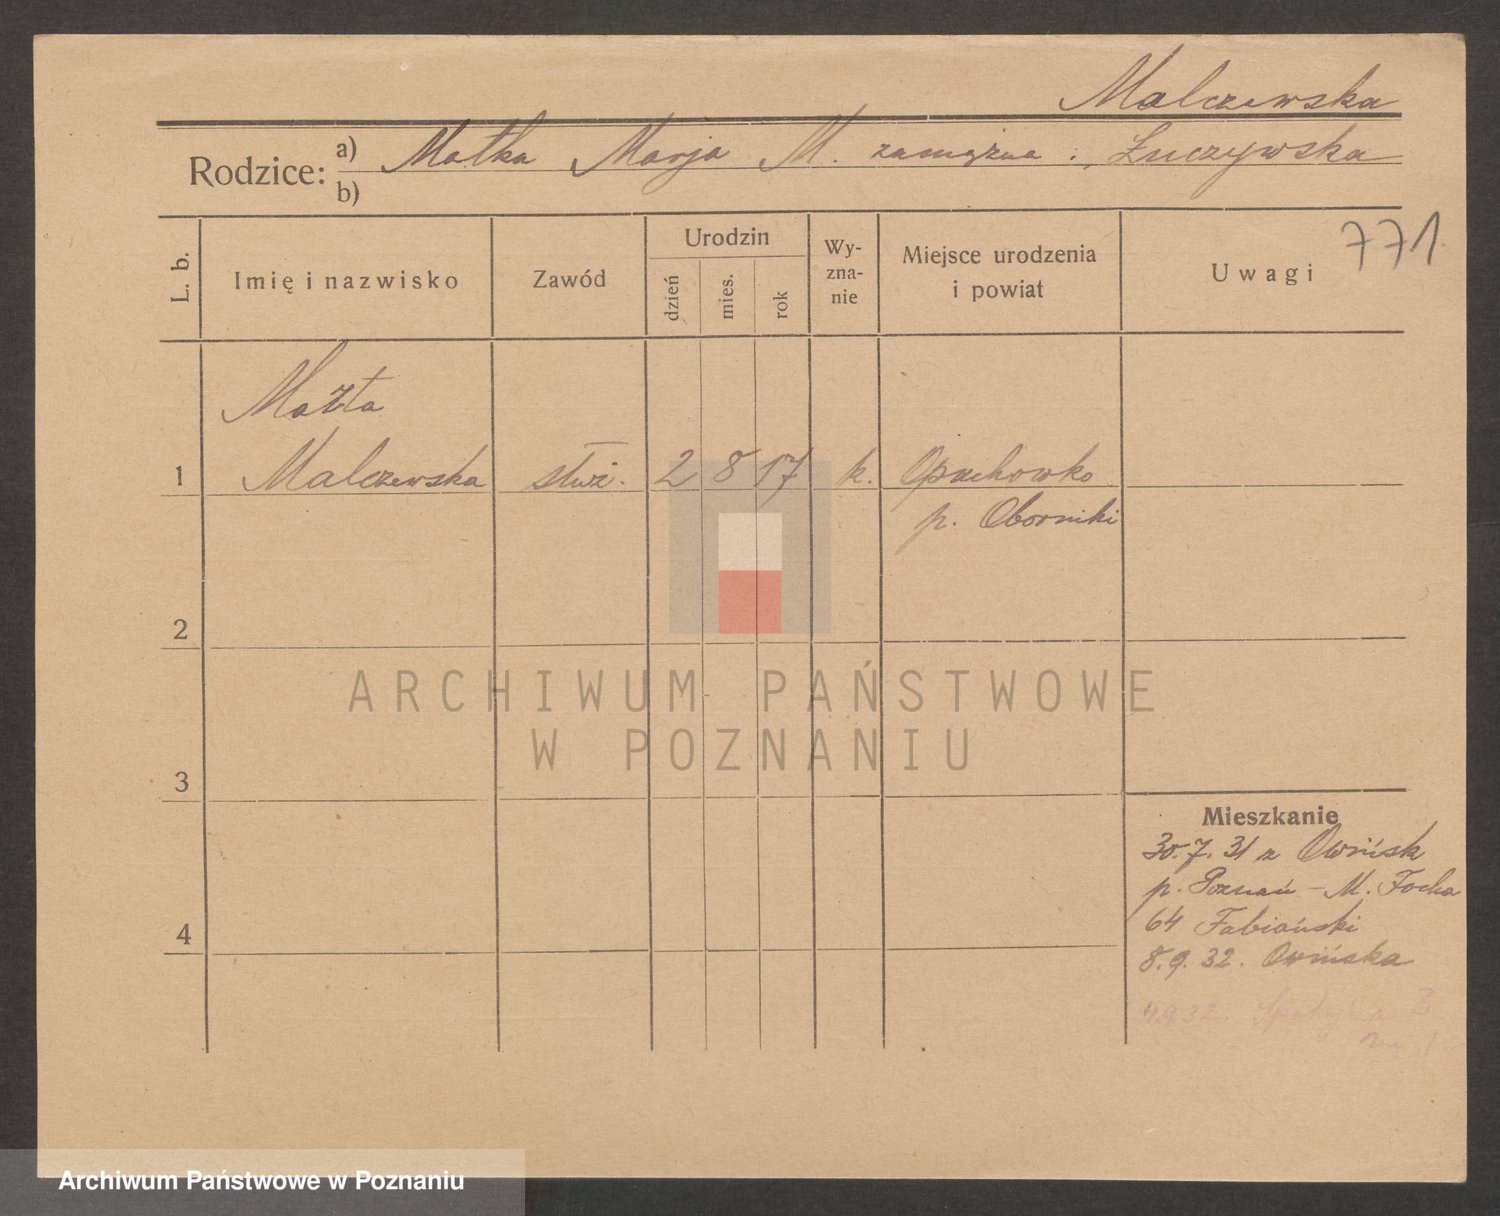 Malczewska
Rodzice: a) Matka Marja M. zamężna Łuczywska
b)
L. b. Imię i nazwisko Zawód Urodzin dzień mies. rok Wy-zna-nie Miejsce urodzenia i powiat Uwagi 771
Marta
1 Malczewska służ. 2 8 17 k. Opuchowko
p. Oborniki
2
ARCHIWUM PAŃSTWOWE
W POZNANIU
3
Mieszkanie
30.7.31 z Owińsk
p. Poznań - M. Focha
64 Fabiański
4
8.9.32. Owińska
4.9.32. Spokojna 3
Archiwum Państwowe w Poznaniu